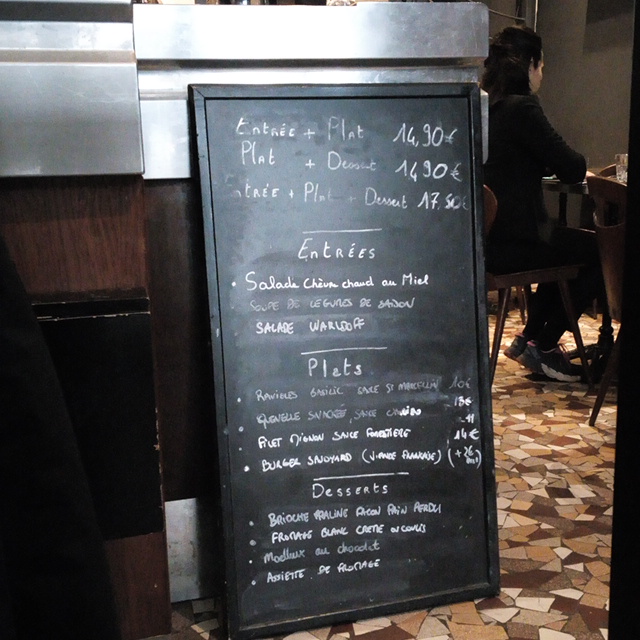 Entrée + Plat 14,90€
Plat + Dessert 14,90€
+ Plat + Dessert 17.50€
Entrées
• Salade chèvre chaud au Miel
SOUPE DE LÉGUMES DE SAISON
SALADE WARLDOFF
Plats
• RAVIOLES BASILIC SAUCE ST MARCELLIN 10€
• QUENELLE SAUCE 15€
• FILET MIGNON SAUCE FORESTIÈRE 14€
• BURGER SAVOYARD (VIANDE FRANÇAISE) (+2€
Desserts
• BRIOCHE PRALINE FAÇON PAIN PERDU
• FROMAGE BLANC CRÈME OU COULIS
• Moelleux au chocolat
• ASSIETTE DE FROMAGE